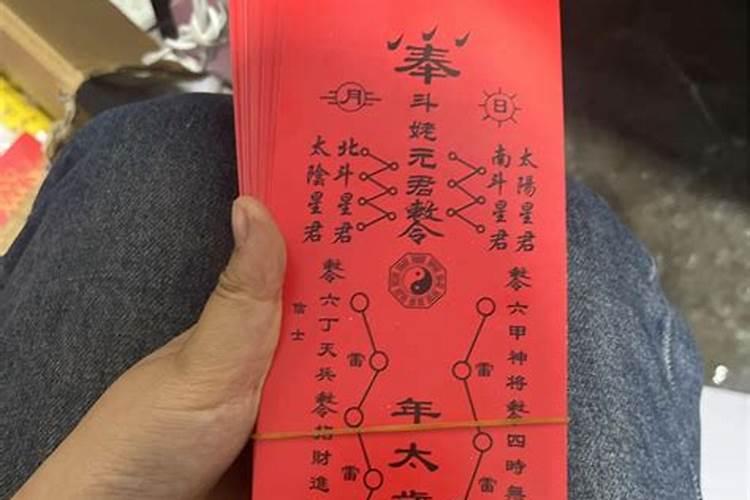 奉
月
日
斗姥元君敕令
太陽星君
南斗星君
北斗星君
太陰星君
敕令六甲神將敕令四時無
敕令六丁天兵敕令招財進
信士
雷
雷
雷
雷
年太歲